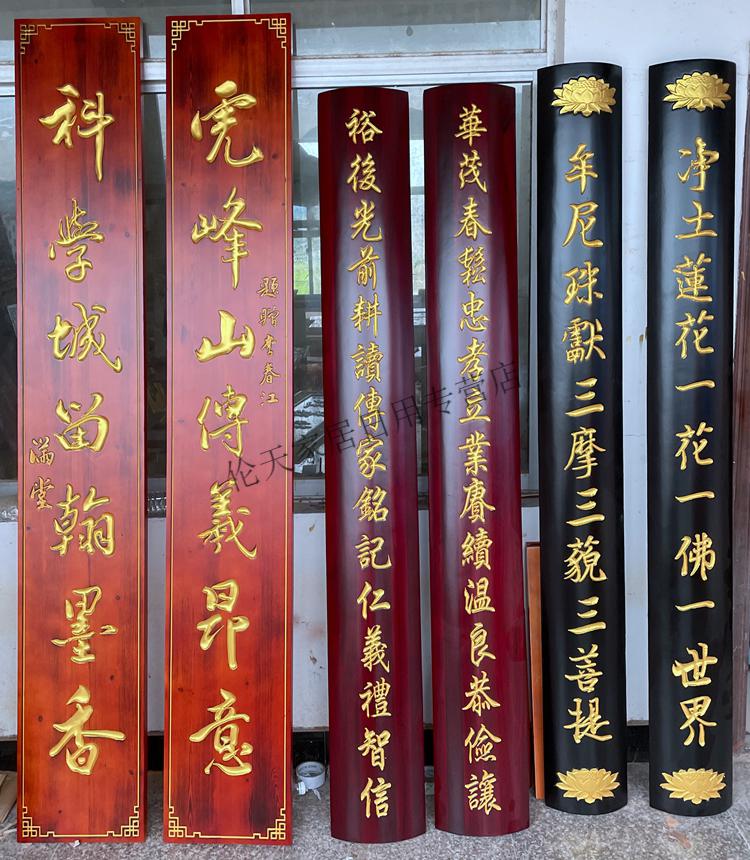 净土蓮花一花一佛一世界
牟尼珠獻三摩三藐三菩提
華茂春鬆忠孝立業賡續温良恭儉讓
裕後光前耕讀傳家銘記仁義禮智信
題贈李春江
虎峰山傳義昂意
科學城留翰墨香
滿堂
伦天家居日用专营店